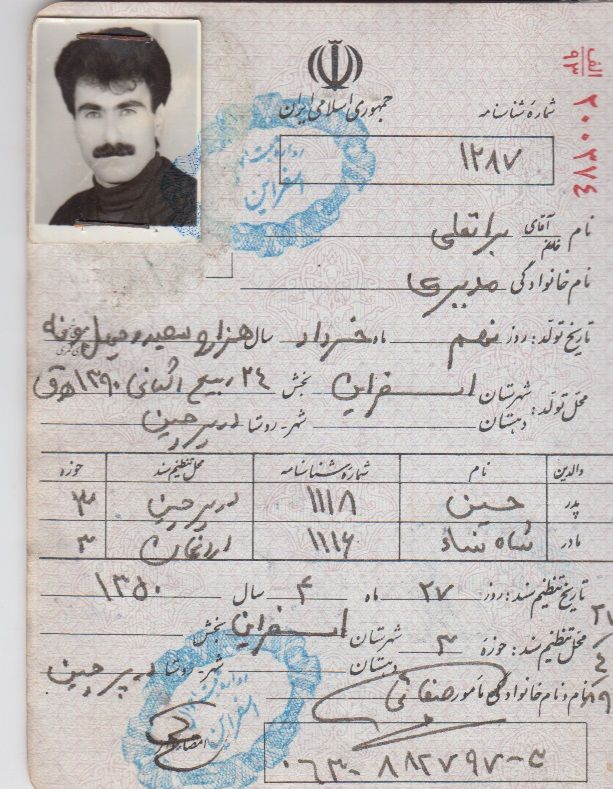 الف
۹۳
۲۰۰۳۷۴
جمهوری اسلامی ایران
شمارهٔ شناسنامه
۱۲۸۷
نام آقای خانم براتعلی
نام خانوادگی مدیری
تاریخ تولد: روز نهم ماه خرداد سال هزار و سیصد و چهل و نه
محل تولد: شهرستان اسفراین بخش ۲۴ ربیع الثانی ۱۳۹۰ ه ق
دهستان شهر-روستا
والدین نام شمارهٔ شناسنامه محل تنظیم سند حوزه
پدر حسین ۱۱۱۸ ۳
مادر شاه ۱۱۱۶ ۳
تاریخ تنظیم سند: روز ۲۷ ماه ۴ سال ۱۳۵۰
محل تنظیم سند: حوزه ۳ شهرستان اسفراین بخش
دهستان شهر-روستا
نام و نام خانوادگی مأمور صفائی
امضاء
۰۶۳-۸۸۲۷۹۷-
اسفراین
اسفراین